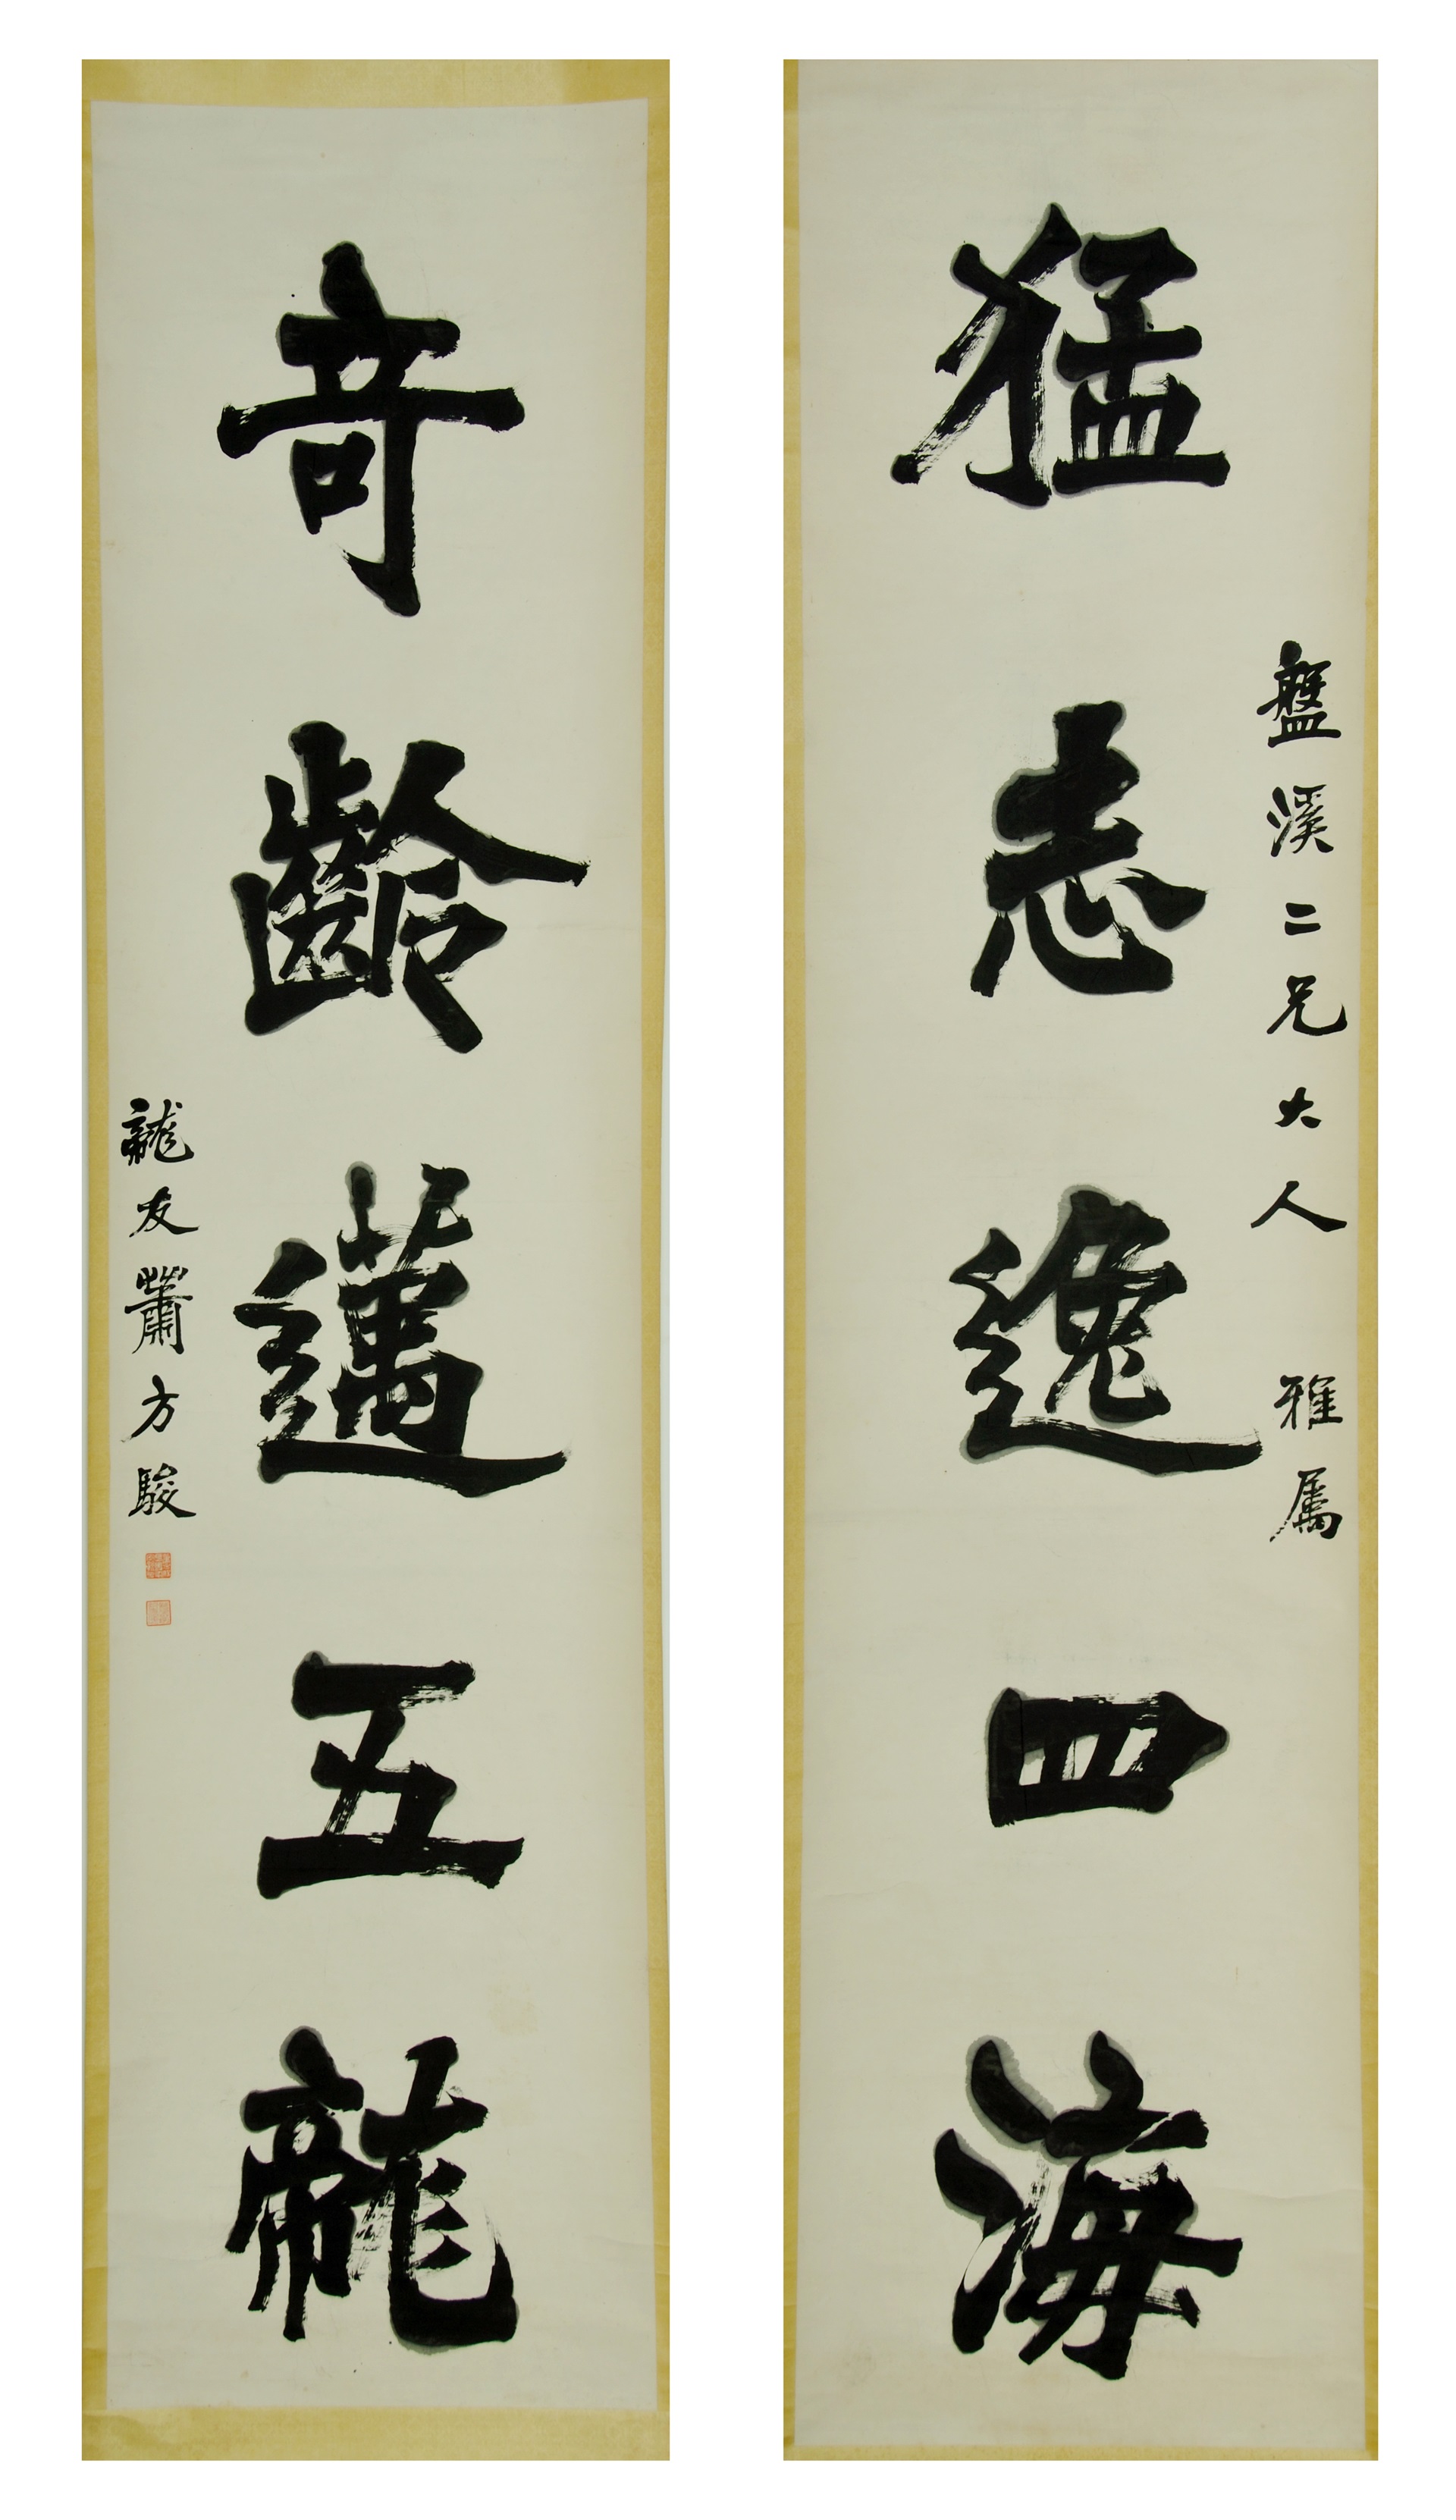 盤溪二兄大人 雅屬
猛志逸四海
奇齡邁五龍
龍友蕭方駿